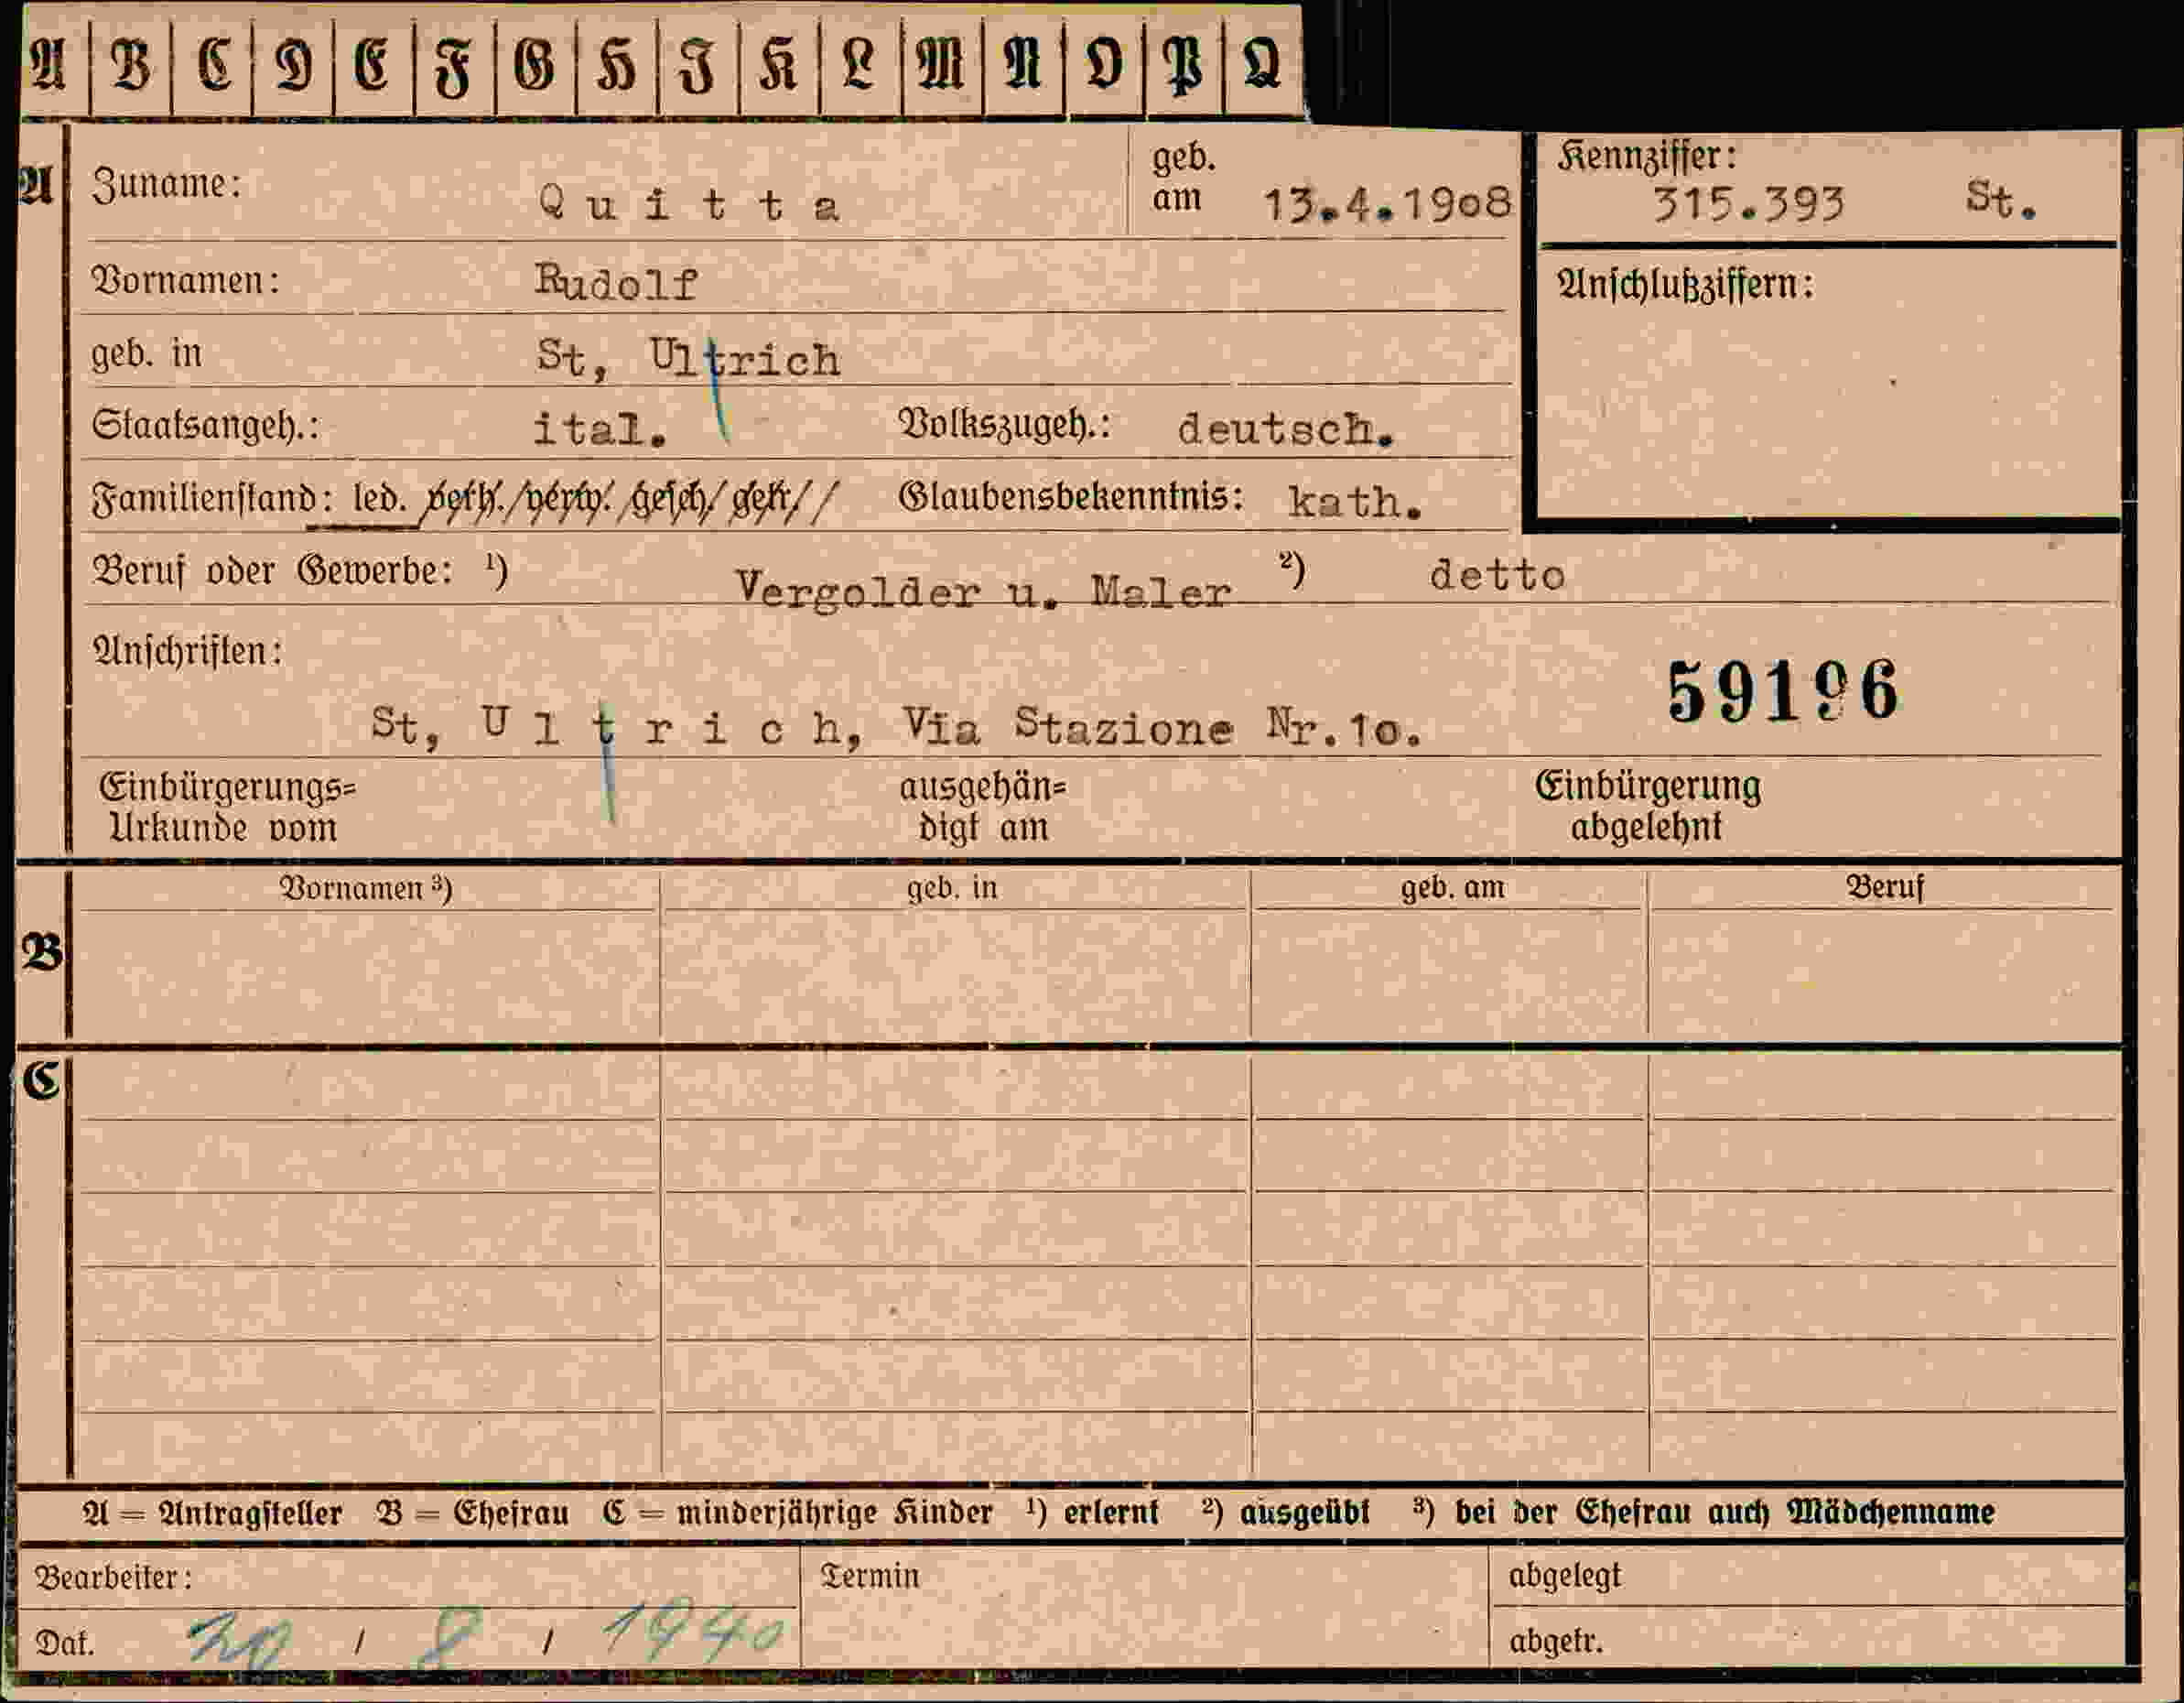 A B C D E F G H I K L M N O P Q
A Zuname: Quitta geb. am 13.4.1908 Kennziffer: 315.393 St.
Vornamen: Rudolf Anschlußziffern:
geb. in St, Ultrich
Staatsangeh.: ital. Volkszugeh.: deutsch.
Familienstand: led. verh./verw./gesch/getr// Glaubensbekenntnis: kath.
Beruf oder Gewerbe: ¹) Vergolder u. Maler ²) detto
Anschriften:
59196
St, Ultrich, Via Stazione Nr.10.
Einbürgerungs= Urkunde vom ausgehän= digt am Einbürgerung abgelehnt
B Vornamen ³) geb. in geb. am Beruf
C
A = Antragsteller B = Ehefrau C = minderjährige Kinder ¹) erlernt ²) ausgeübt ³) bei der Ehefrau auch Mädchenname
Bearbeiter: Termin abgelegt
Dat. / 8 / 1940 abgetr.